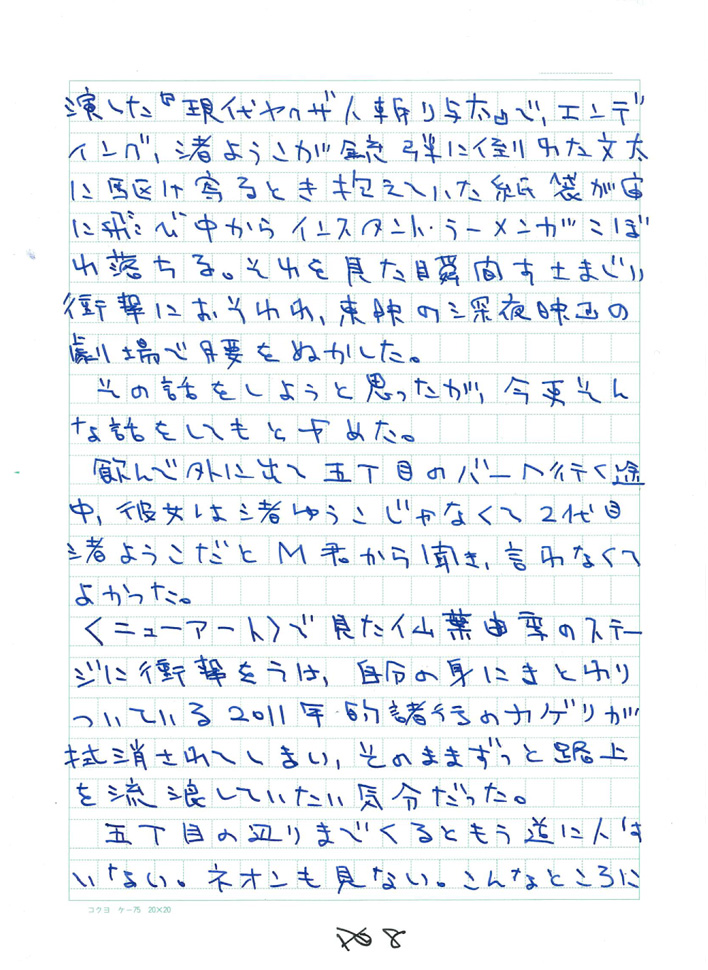 演した『現代ヤクザ人斬り与太』で、エンデ
ィング、渚ようこが銃弾に倒れた文太
に駆け寄るとき抱えていた紙袋が宙
に飛び中からインスタント・ラーメンがこぼ
れ落ちる。それを見た瞬間すさまじい
衝撃におそわれ、東映の深夜映画の
劇場で腰をぬかした。
その話をしようと思ったが、今更そん
な話をしてもとやめた。
飲んで外に出て五丁目のバーへ行く途
中、彼女は渚ゆうこじゃなくて2代目
渚ようこだとM君から聞き、言わなくて
よかった。
〈ニューアート〉で見た仙葉由季のステー
ジに衝撃をうけ、自分の身にまとわり
ついている2011年的諸行のカゲリが
拭消されてしまい、そのままずっと路上
を流浪していたい気分だった。
五丁目の辺りまでくるともう道に人は
いない。ネオンも見ない。こんなところに
コクヨ ケ-75 20×20
No 8